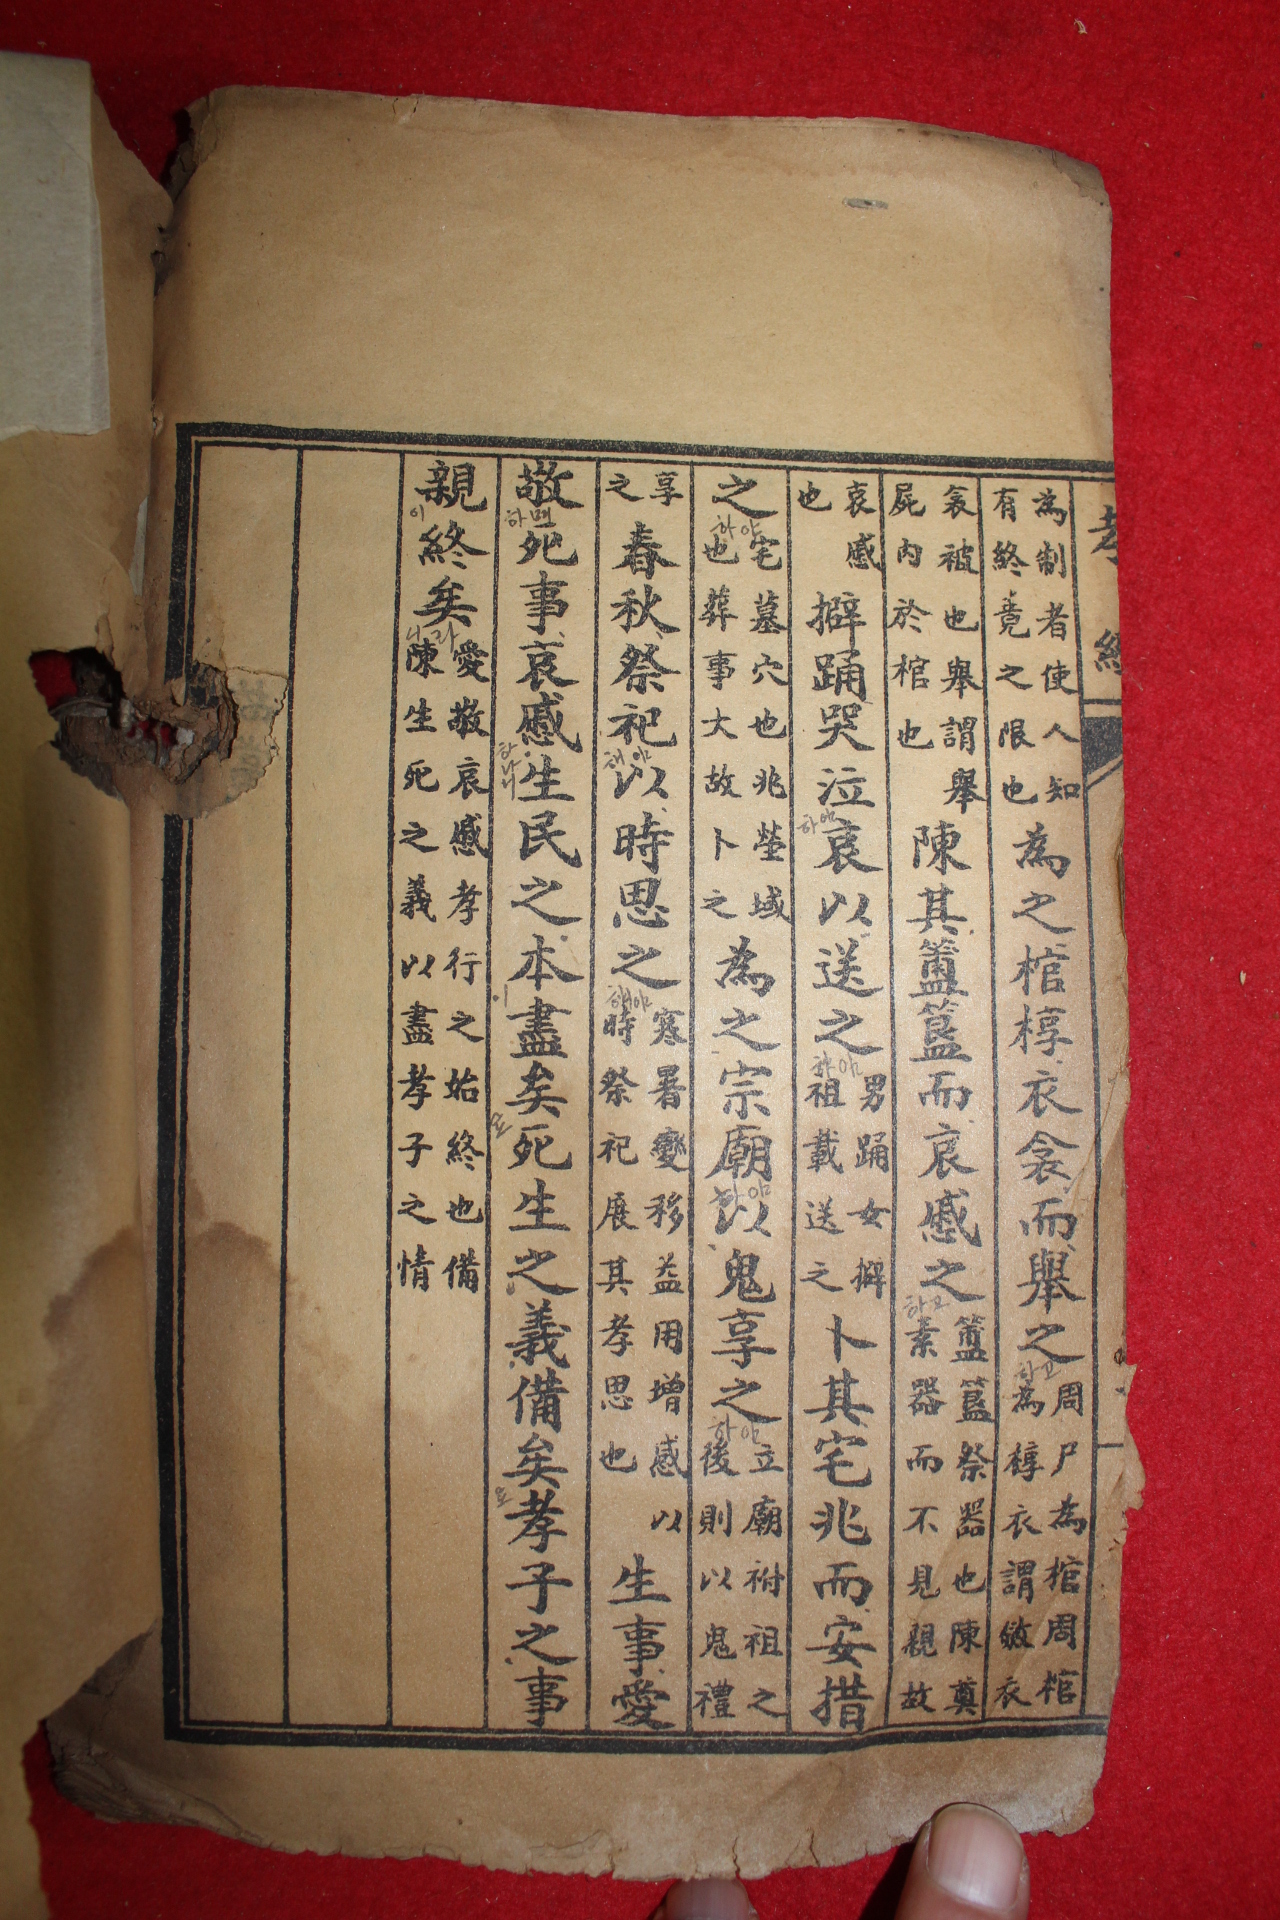 孝經
為制者使人知有終竟之限也為之棺椁衣衾而舉之周尸為棺周棺為椁衣謂斂衣
衾被也舉謂舉屍內於棺也陳其簠簋而哀慼之簠簋祭器也陳奠素器而不見親故
哀慼也擗踊哭泣哀以送之男踊女擗祖載送之卜其宅兆而安措
之宅墓穴也兆塋域也葬事大故卜之為之宗廟以鬼享之立廟祔祖之後則以鬼禮
享之春秋祭祀以時思之寒暑變移益用增感以時祭祀展其孝思也生事愛
敬死事哀慼生民之本盡矣死生之義備矣孝子之事
親終矣愛敬哀慼孝行之始終也備陳生死之義以盡孝子之情